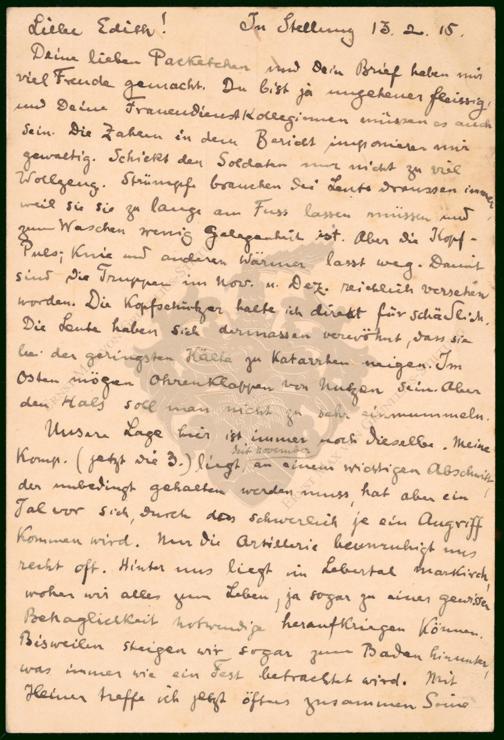 Liebe Edith! In Stellung 13. 2. 15.
Deine lieben Packetchen und Dein Brief haben mir
viel Freude gemacht. Du bist ja ungeheuer fleissig,
und Deine Frauendienstkolleginnen müssen es auch
sein. Die Zahlen in dem Bericht imponieren mir
gewaltig. Schickt den Soldaten nur nicht zu viel
Wollzeug. Strümpfe brauchen die Leute draussen immer,
weil sie sie zu lange am Fuss lassen müssen und
zum Waschen wenig Gelegenheit ist. Aber die Kopf-
Puls, Knie und anderen Wärmer lasst weg. Damit
sind die Truppen im Nov. u. Dez. reichlich versehen
worden. Die Kopfschützer halte ich direkt für schädlich.
Die Leute haben sich dermassen verwöhnt, dass sie
bei der geringsten Kälte zu Katarrhen neigen. Im
Osten mögen Ohrenklappen von Nutzen sein. Aber
den Hals soll man nicht zu sehr einmummeln.
Unsere Lage hier ist immer noch dieselbe. Meine
seit November
Komp. (jetzt die 3.) liegt an einem wichtigen Abschnitt,
der unbedingt gehalten werden muss, hat aber ein
Tal vor sich, durch das schwerlich je ein Angriff
kommen wird. Nur die Artillerie beunruhigt uns
recht oft. Hinter uns liegt im Lebertal Markirch,
woher wir alles zum Leben, ja sogar zu einer gewissen
Behaglichkeit notwendige heraufkriegen können.
Bisweilen steigen wir sogar zum Baden hinunter,
was immer wie ein Fest betrachtet wird. Mit
Heiner treffe ich jetzt öfters zusammen. Seine